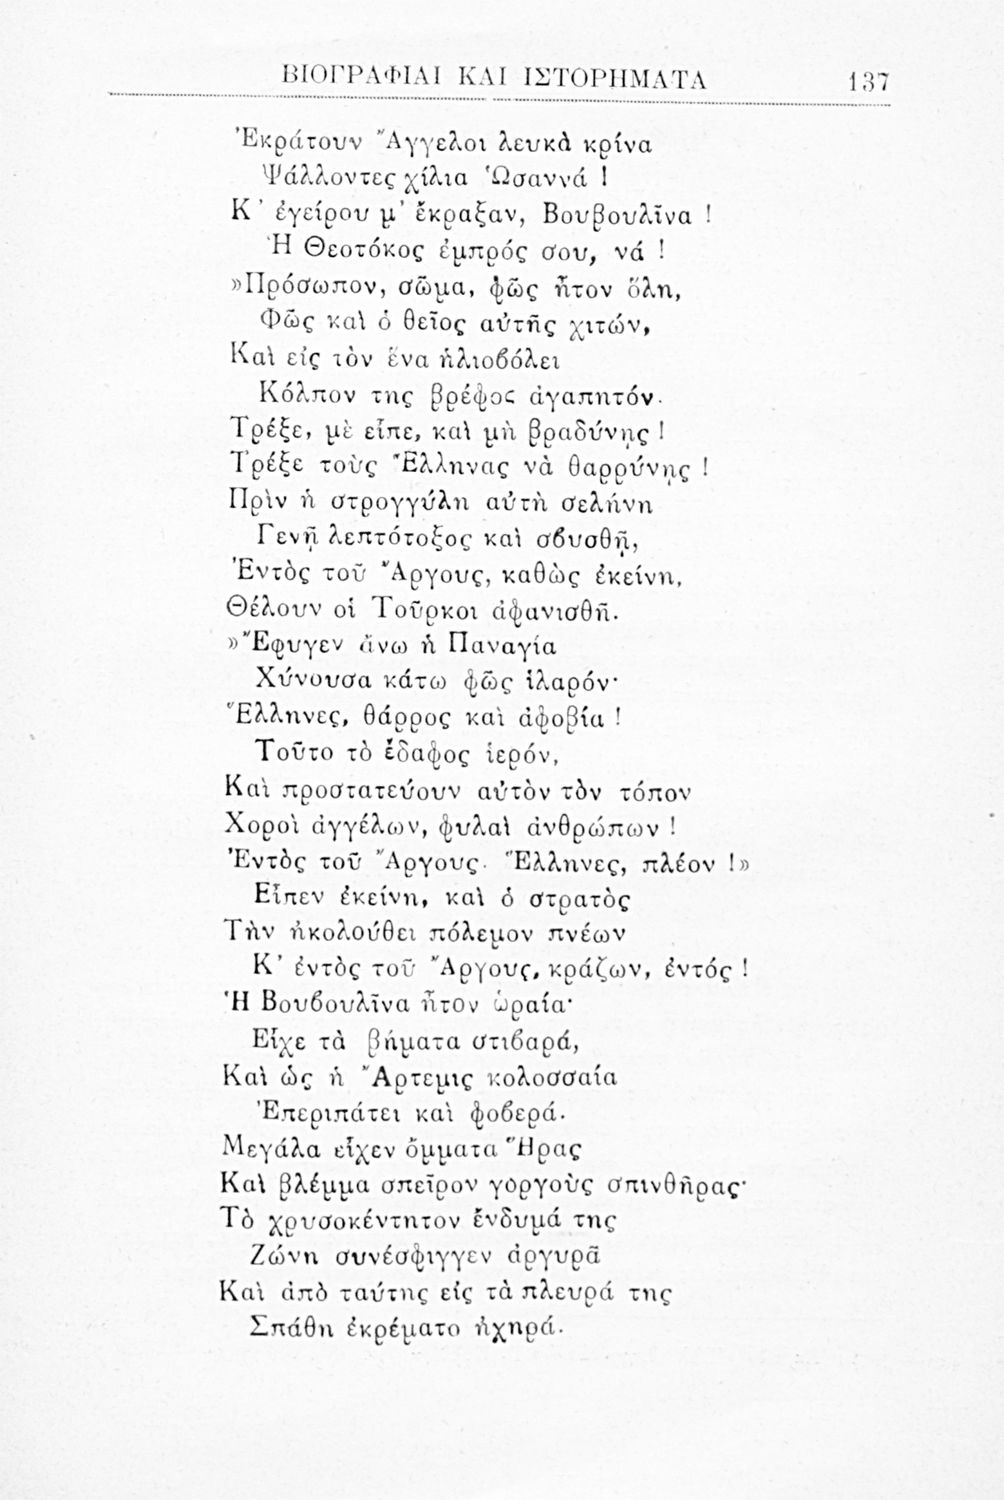 ΒΙΟΓΡΑΦΙΑΙ ΚΑΙ ΙΣΤΟΡΗΜΑΤΑ 137
Ἐκράτουν Ἄγγελοι λευκὰ κρίνα
Ψάλλοντες χίλια Ὡσαννά !
Κ' ἐγείρου μ' ἔκραξαν, Βουβουλῖνα !
Ἡ Θεοτόκος ἐμπρός σου, νά !
»Πρόσωπον, σῶμα, φῶς ἦτον ὅλη,
Φῶς καὶ ὁ θεῖος αὐτῆς χιτών,
Καὶ εἰς τὸν ἕνα ἡλιοβόλει
Κόλπον της βρέφος ἀγαπητόν.
Τρέξε, μὲ εἶπε, καὶ μὴ βραδύνῃς !
Τρέξε τοὺς Ἕλληνας νὰ θαρρύνῃς !
Πρὶν ἡ στρογγύλη αὐτὴ σελήνη
Γενῇ λεπτότοξος καὶ σβυσθῇ,
Ἐντὸς τοῦ Ἄργους, καθὼς ἐκείνη,
Θέλουν οἱ Τοῦρκοι ἀφανισθῆ.
»Ἔφυγεν ἄνω ἡ Παναγία
Χύνουσα κάτω φῶς ἱλαρόν·
Ἕλληνες, θάρρος καὶ ἀφοβία !
Τοῦτο τὸ ἔδαφος ἱερόν,
Καὶ προστατεύουν αὐτὸν τὸν τόπον
Χοροὶ ἀγγέλων, φυλαὶ ἀνθρώπων !
Ἐντὸς τοῦ Ἄργους. Ἕλληνες, πλέον !»
Εἶπεν ἐκείνη, καὶ ὁ στρατὸς
Τὴν ἠκολούθει πόλεμον πνέων
Κ' ἐντὸς τοῦ Ἄργους, κράζων, ἐντός !
Ἡ Βουβουλῖνα ἦτον ὡραία·
Εἶχε τὰ βήματα στιβαρά,
Καὶ ὡς ἡ Ἄρτεμις κολοσσαία
Ἐπεριπάτει καὶ φοβερά.
Μεγάλα εἶχεν ὄμματα Ἥρας
Καὶ βλέμμα σπεῖρον γοργοὺς σπινθῆρας·
Τὸ χρυσοκέντητον ἔνδυμά της
Ζώνη συνέσφιγγεν ἀργυρᾶ
Καὶ ἀπὸ ταύτης εἰς τὰ πλευρά της
Σπάθη ἐκρέματο ἠχηρά.